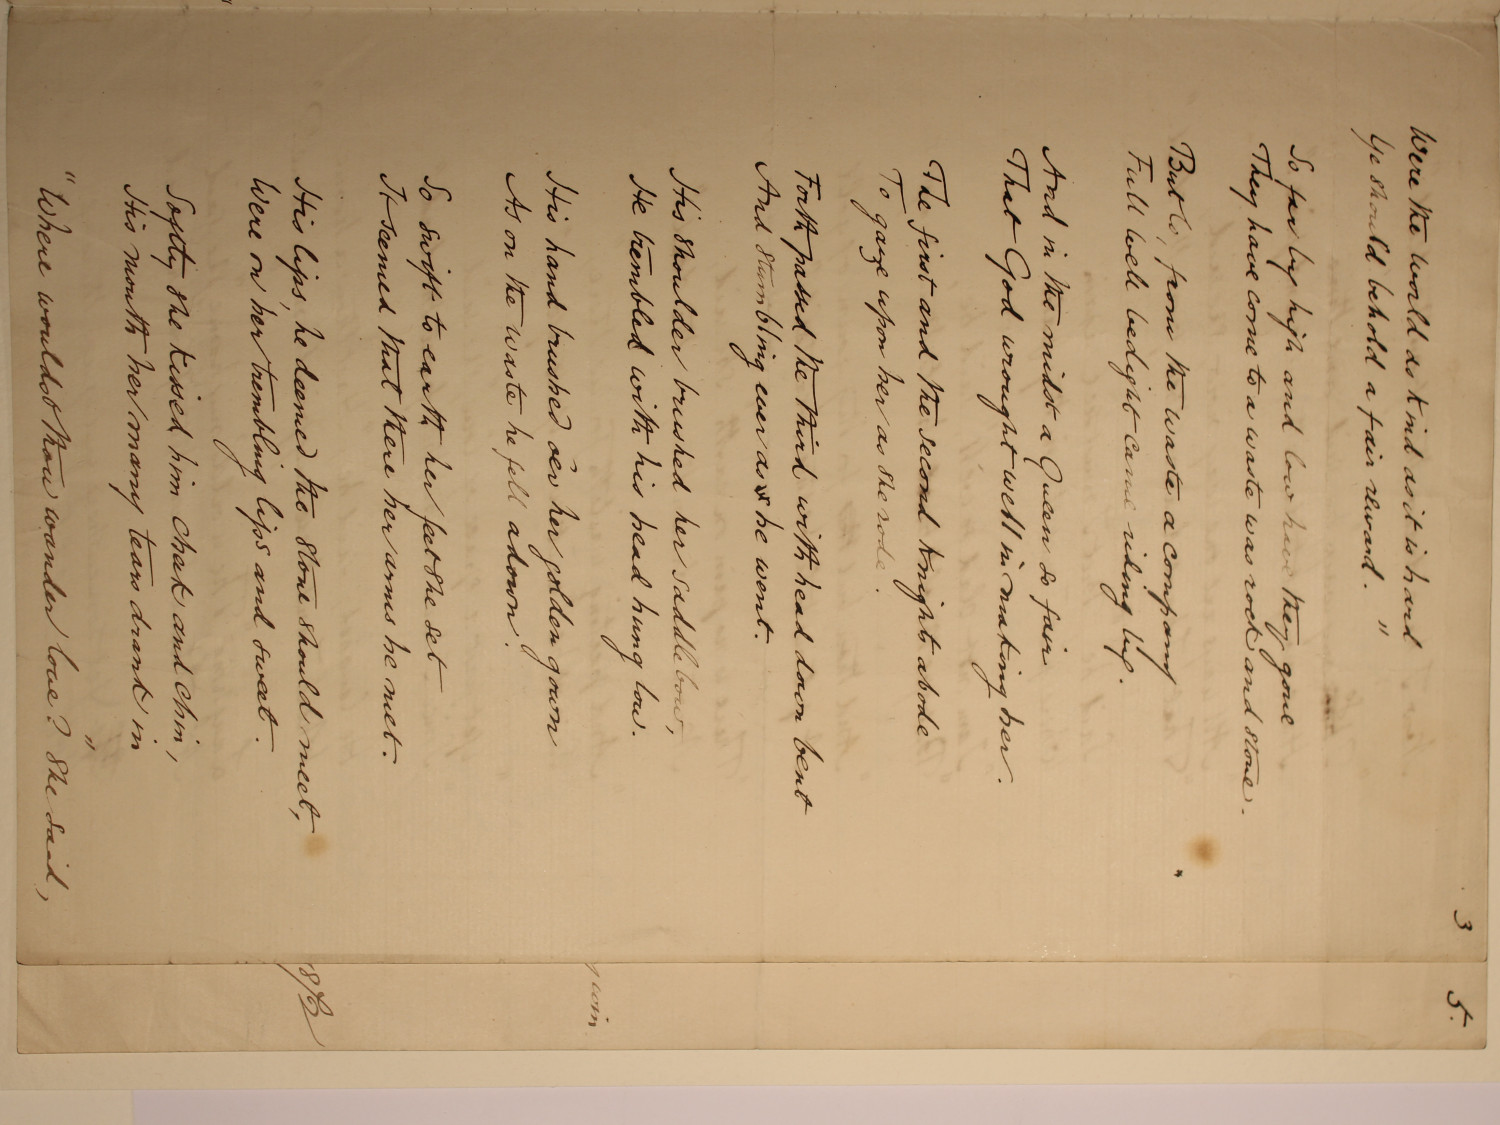 3
5.
Were the world as kind as it is hard
Ye should behold a fair reward."
So far by high and low have they gone
They have come to a waste was rock and stone.
But lo, from the waste a company
Full well bedight came riding by.
And in the midst a Queen so fair
That God wrought well in making her.
The first and the second knights abode
To gaze upon her as she rode.
Forth passed the third with head down bent
And stumbling ever as he went.
His shoulder brushed her saddle bow,
He trembled with his head hung low.
His hand brushed o'er her golden gown
As on the waste he fell adown.
So swift to earth her feet she set
It seemed that there her arms he met.
His lips, he deemed the stone should meet,
Were on her trembling lips and sweet.
Softly she kissed him cheek and chin,
His mouth her many tears drank in
"Where wouldst thou wander love?" she said,